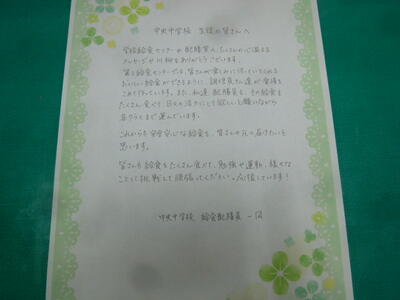 中央中学校 生徒の皆さんへ
学校給食センターや配膳員へ、たくさんの心温まる
メッセージや川柳をありがとうございます。
第2給食センターでは、皆さんが楽しみに待っていてくれる
おいしい給食ができるように、調理員さん達が愛情を
こめて作っています。また、私達配膳員も、その給食を
たくさん食べて、日々の活力にして欲しいと願いながら
各クラスまで運んでいます。
これからも安全安心な給食を、皆さんの元へ届けたいと
思います。
皆さんも給食をたくさん食べて、勉強や運動、様々な
ことに挑戦して頑張ってください。応援しています!
中央中学校 給食配膳員 一同